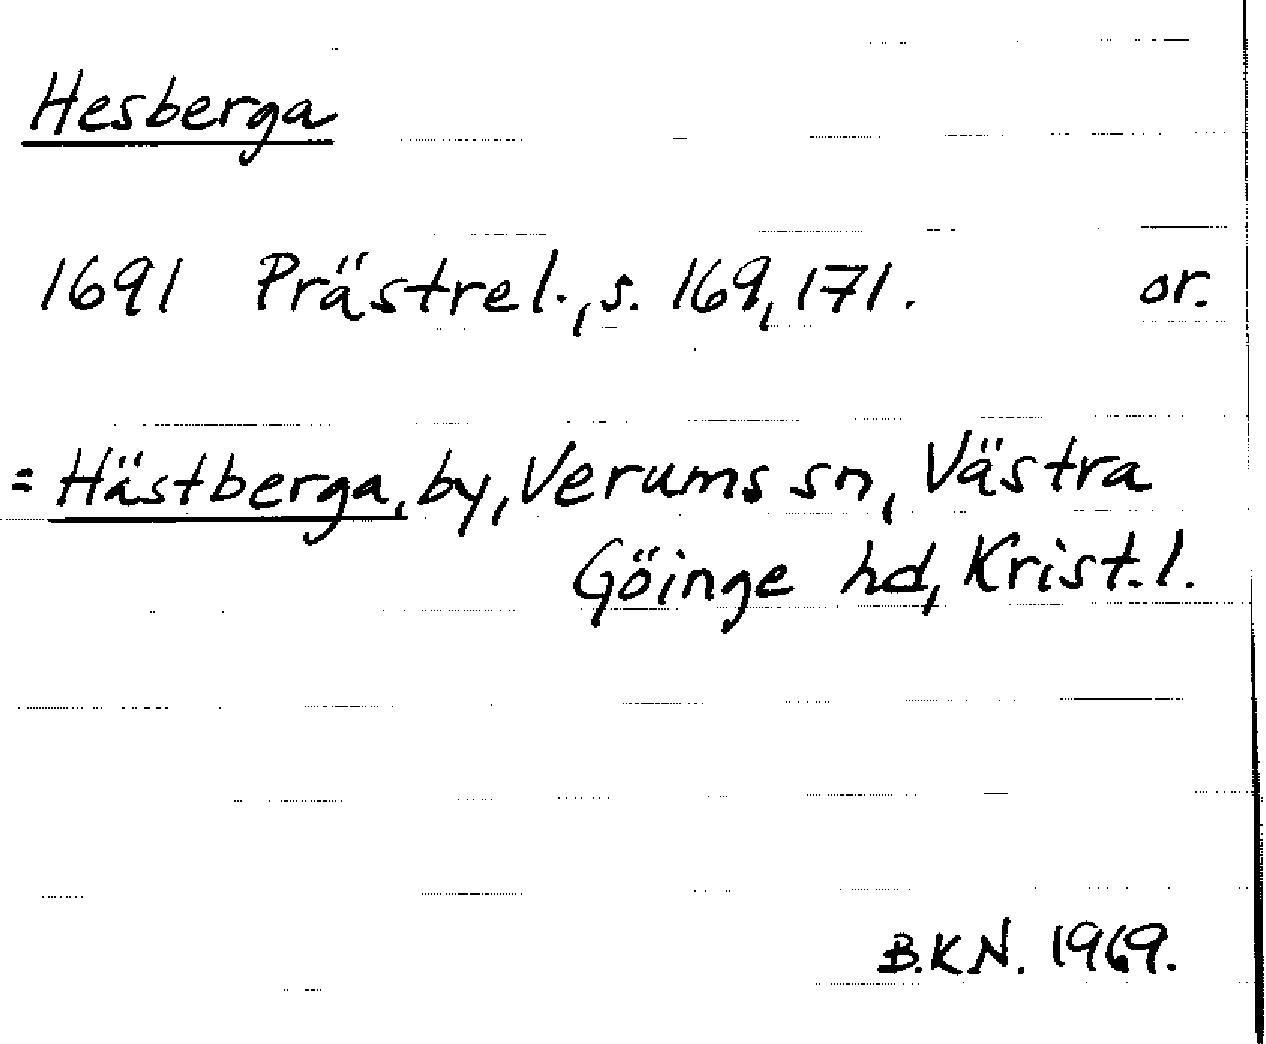 Hesberga
1691 Prästrel., s. 169, 171. or.
= Hästberga, by, Verums sn, Västra
Göinge hd, Krist. l.
B.K.N. 1969.